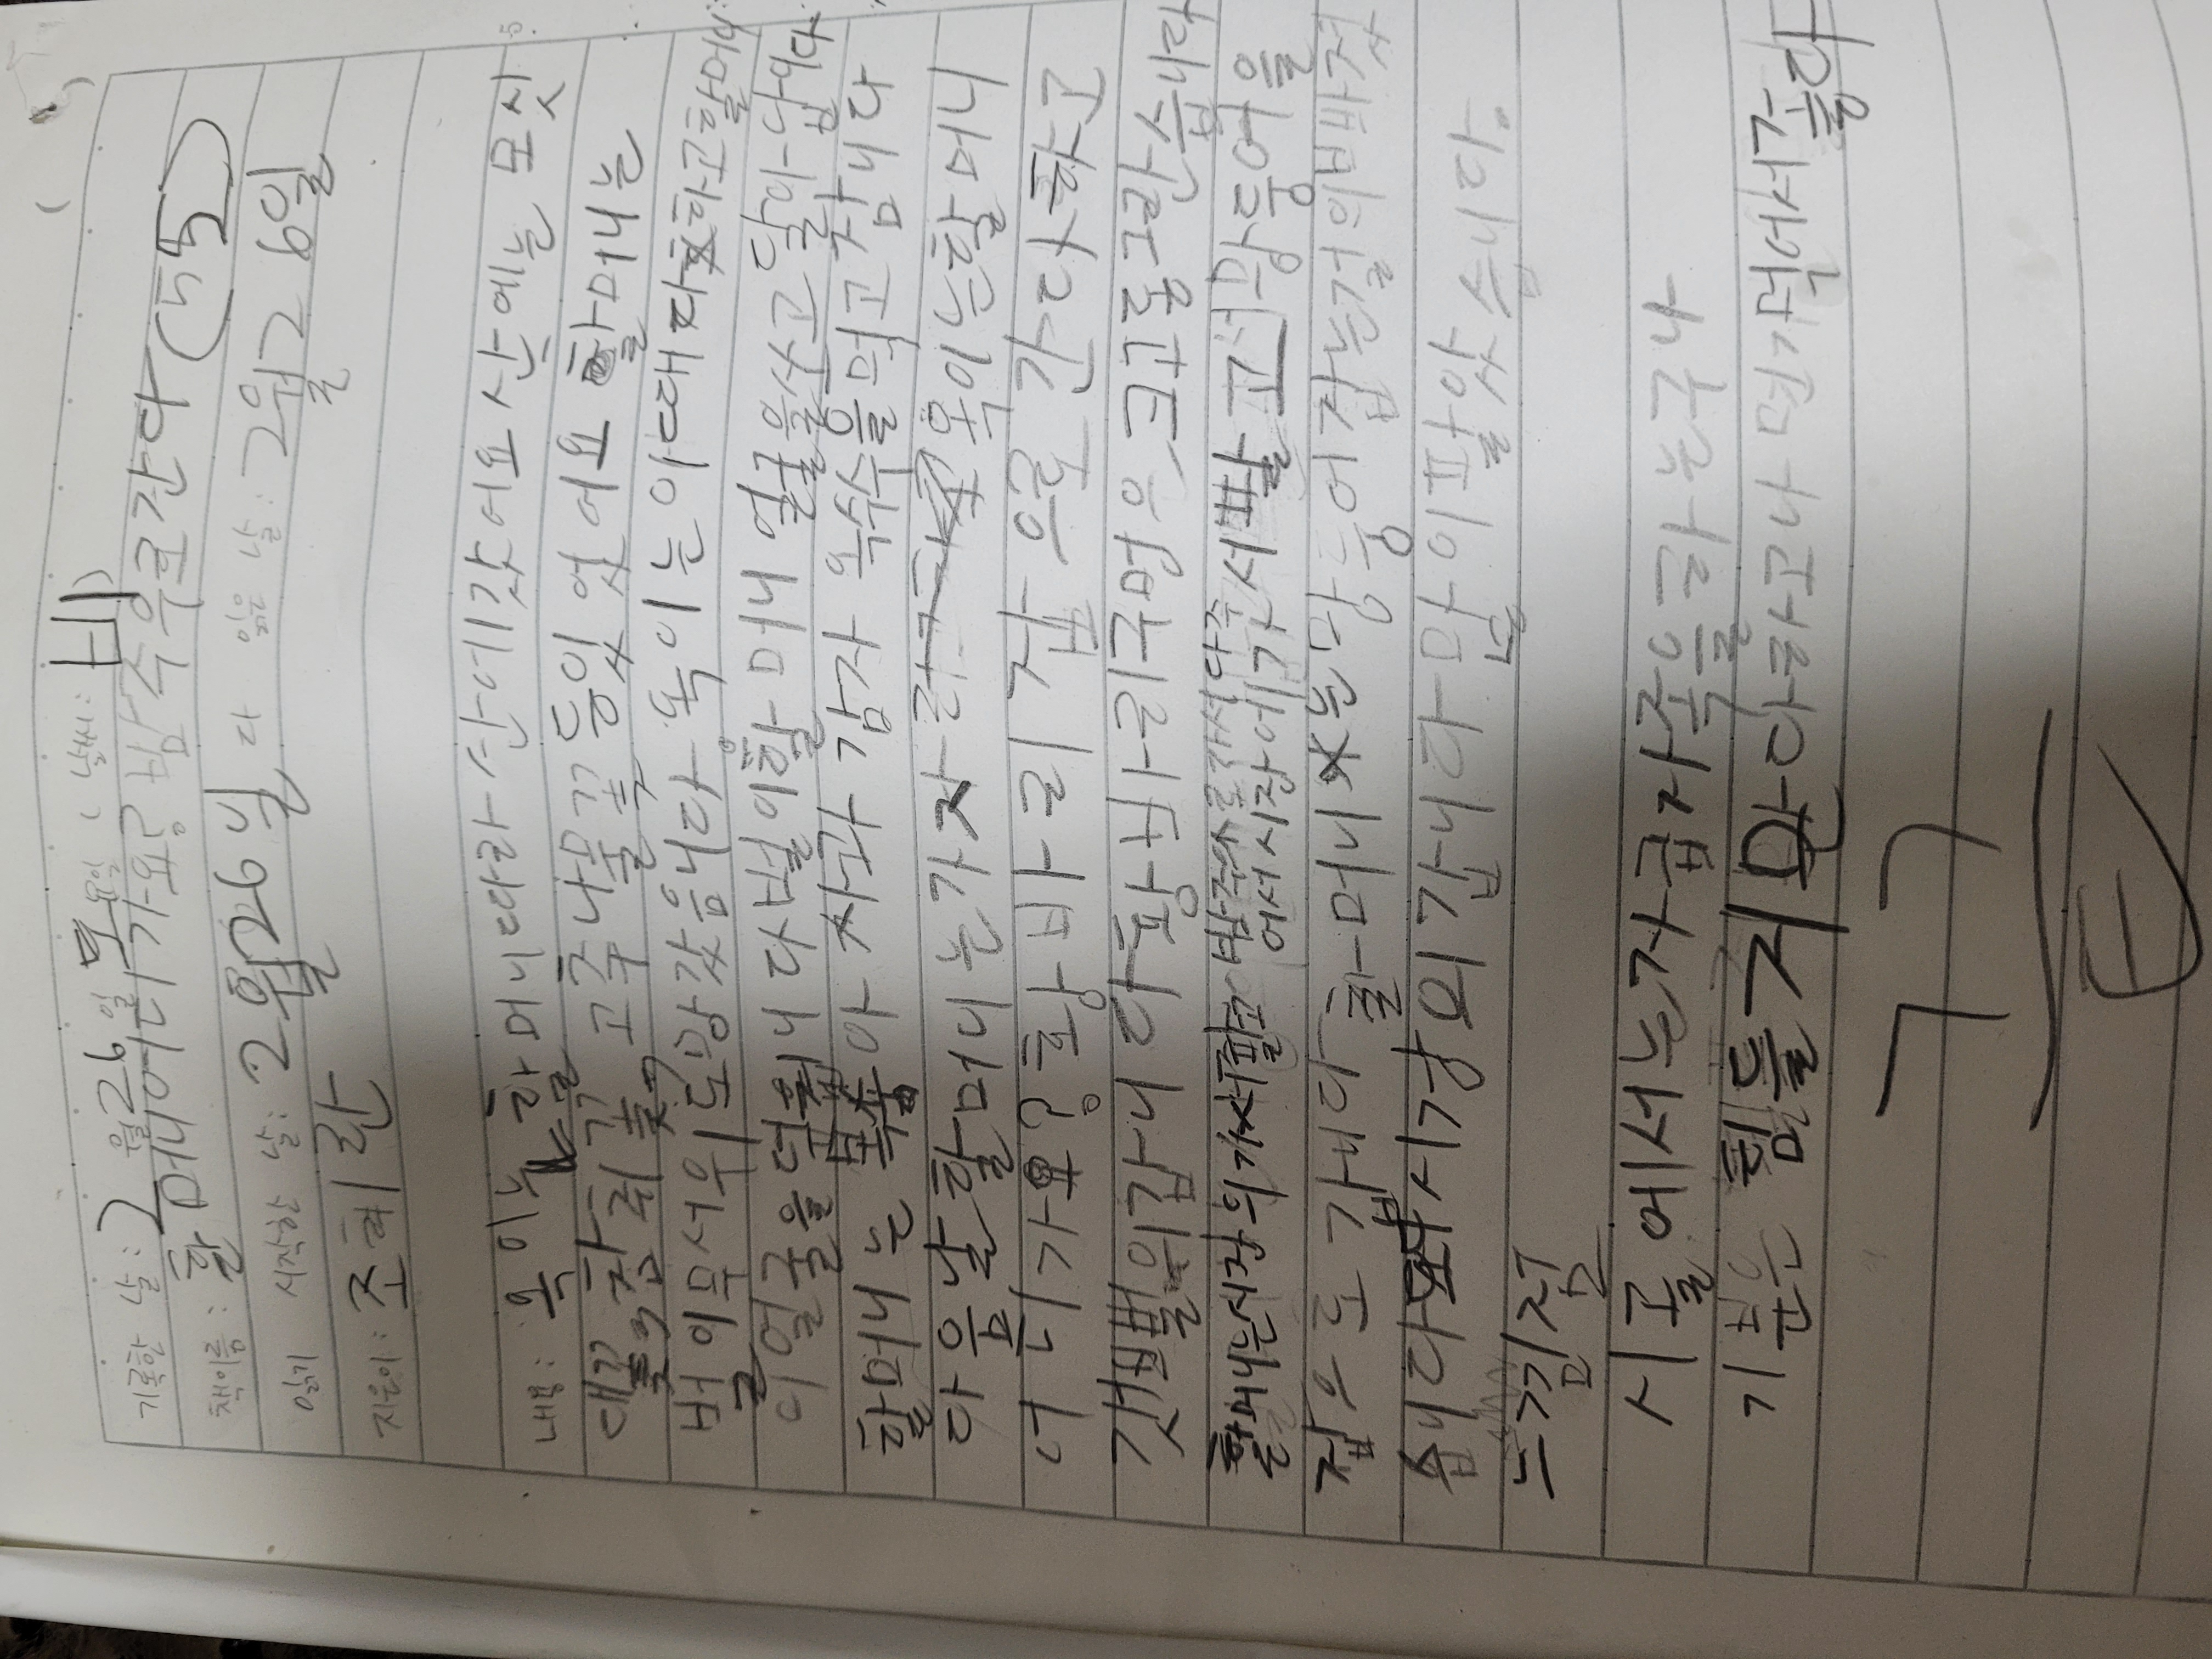 기록한 날: 2월 26일 토요일 ( 날씨: 비)
책이름: 할머니어디가요? 밤 주우로간다 (55)
읽기 시작한 날: 2월 26일 다 읽은 날: 2월 26일
지은이: 조혜란
내용: 옥이는 할머니따라 산에갔어요 산에는 모싯
대꽃, 참취꽃, 고추나물꽃 등있었어요 할머니는
벌이무서워도망갔음니다. 옥이는 이때다하고할머니
이얼굴을 덥윕니다벌이할머니 얼굴을쏘고 달아납니다
할머니는 복숭아 사과 감자 옥수수을먹고잡니다
다음날할머니는가자 옥이는할머니
어디가요? 황바리 잡으로 간다하고
갯뻘의갑니다황바리구멍은크고동그란습니다
할머니는시장의가서팔고 밤주으로가서다주
어서시장에가서팔고 망둥어을
잡으로 갑니다 할머니는망둥어잡는걸의빠졋
습니다 시장의갑니다 많이팔았습니다.
느낌점
시골에서는자급자족을하는구나
기분은 힘들지만다하고나면 먹어서좋다
ㄱㄱ